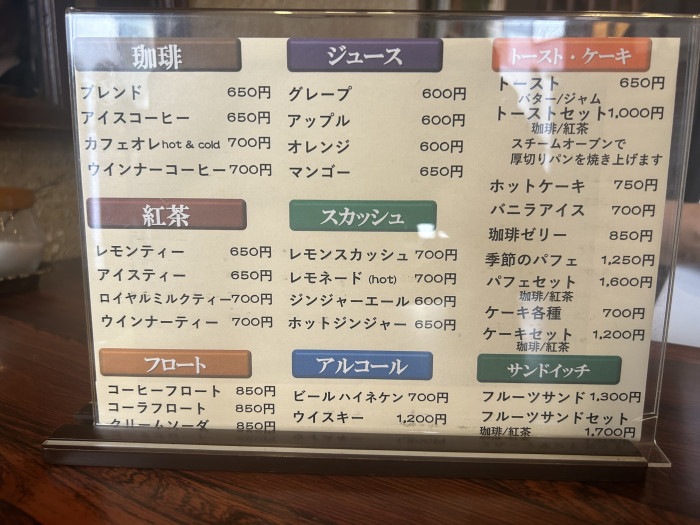 珈琲
ブレンド 650円
アイスコーヒー 650円
カフェオレ hot & cold 700円
ウインナーコーヒー 700円
紅茶
レモンティー 650円
アイスティー 650円
ロイヤルミルクティー 700円
ウインナーティー 700円
フロート
コーヒーフロート 850円
コーラフロート 850円
クリームソーダ 850円
ジュース
グレープ 600円
アップル 600円
オレンジ 600円
マンゴー 650円
スカッシュ
レモンスカッシュ 700円
レモネード (hot) 700円
ジンジャーエール 600円
ホットジンジャー 650円
アルコール
ビール ハイネケン 700円
ウイスキー 1,200円
トースト・ケーキ
トースト 650円
バター/ジャム
トーストセット 1,000円
珈琲/紅茶
スチームオーブンで
厚切りパンを焼き上げます
ホットケーキ 750円
バニラアイス 700円
珈琲ゼリー 850円
季節のパフェ 1,250円
パフェセット 1,600円
珈琲/紅茶
ケーキ各種 700円
ケーキセット 1,200円
珈琲/紅茶
サンドイッチ
フルーツサンド 1,300円
フルーツサンドセット
珈琲/紅茶 1,700円